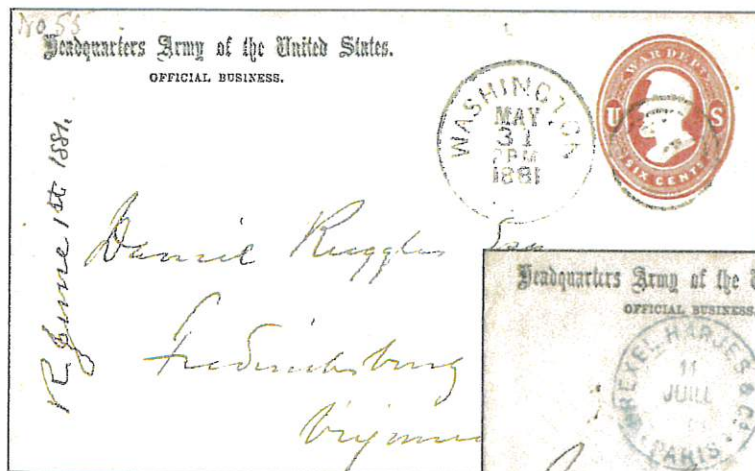 No 55
Headquarters Army of the United States.
OFFICIAL BUSINESS.
R June 1st 1881.
WASHINGTON
MAY
31
2PM
1881
WAR DEPT.
U S
SIX CENTS
Daniel Ruggles Esq
Fredericksburg
Virginia
Headquarters Army of the U
OFFICIAL BUSINESS
DREXEL, HARJES & Co.
11
JUIL
PARIS